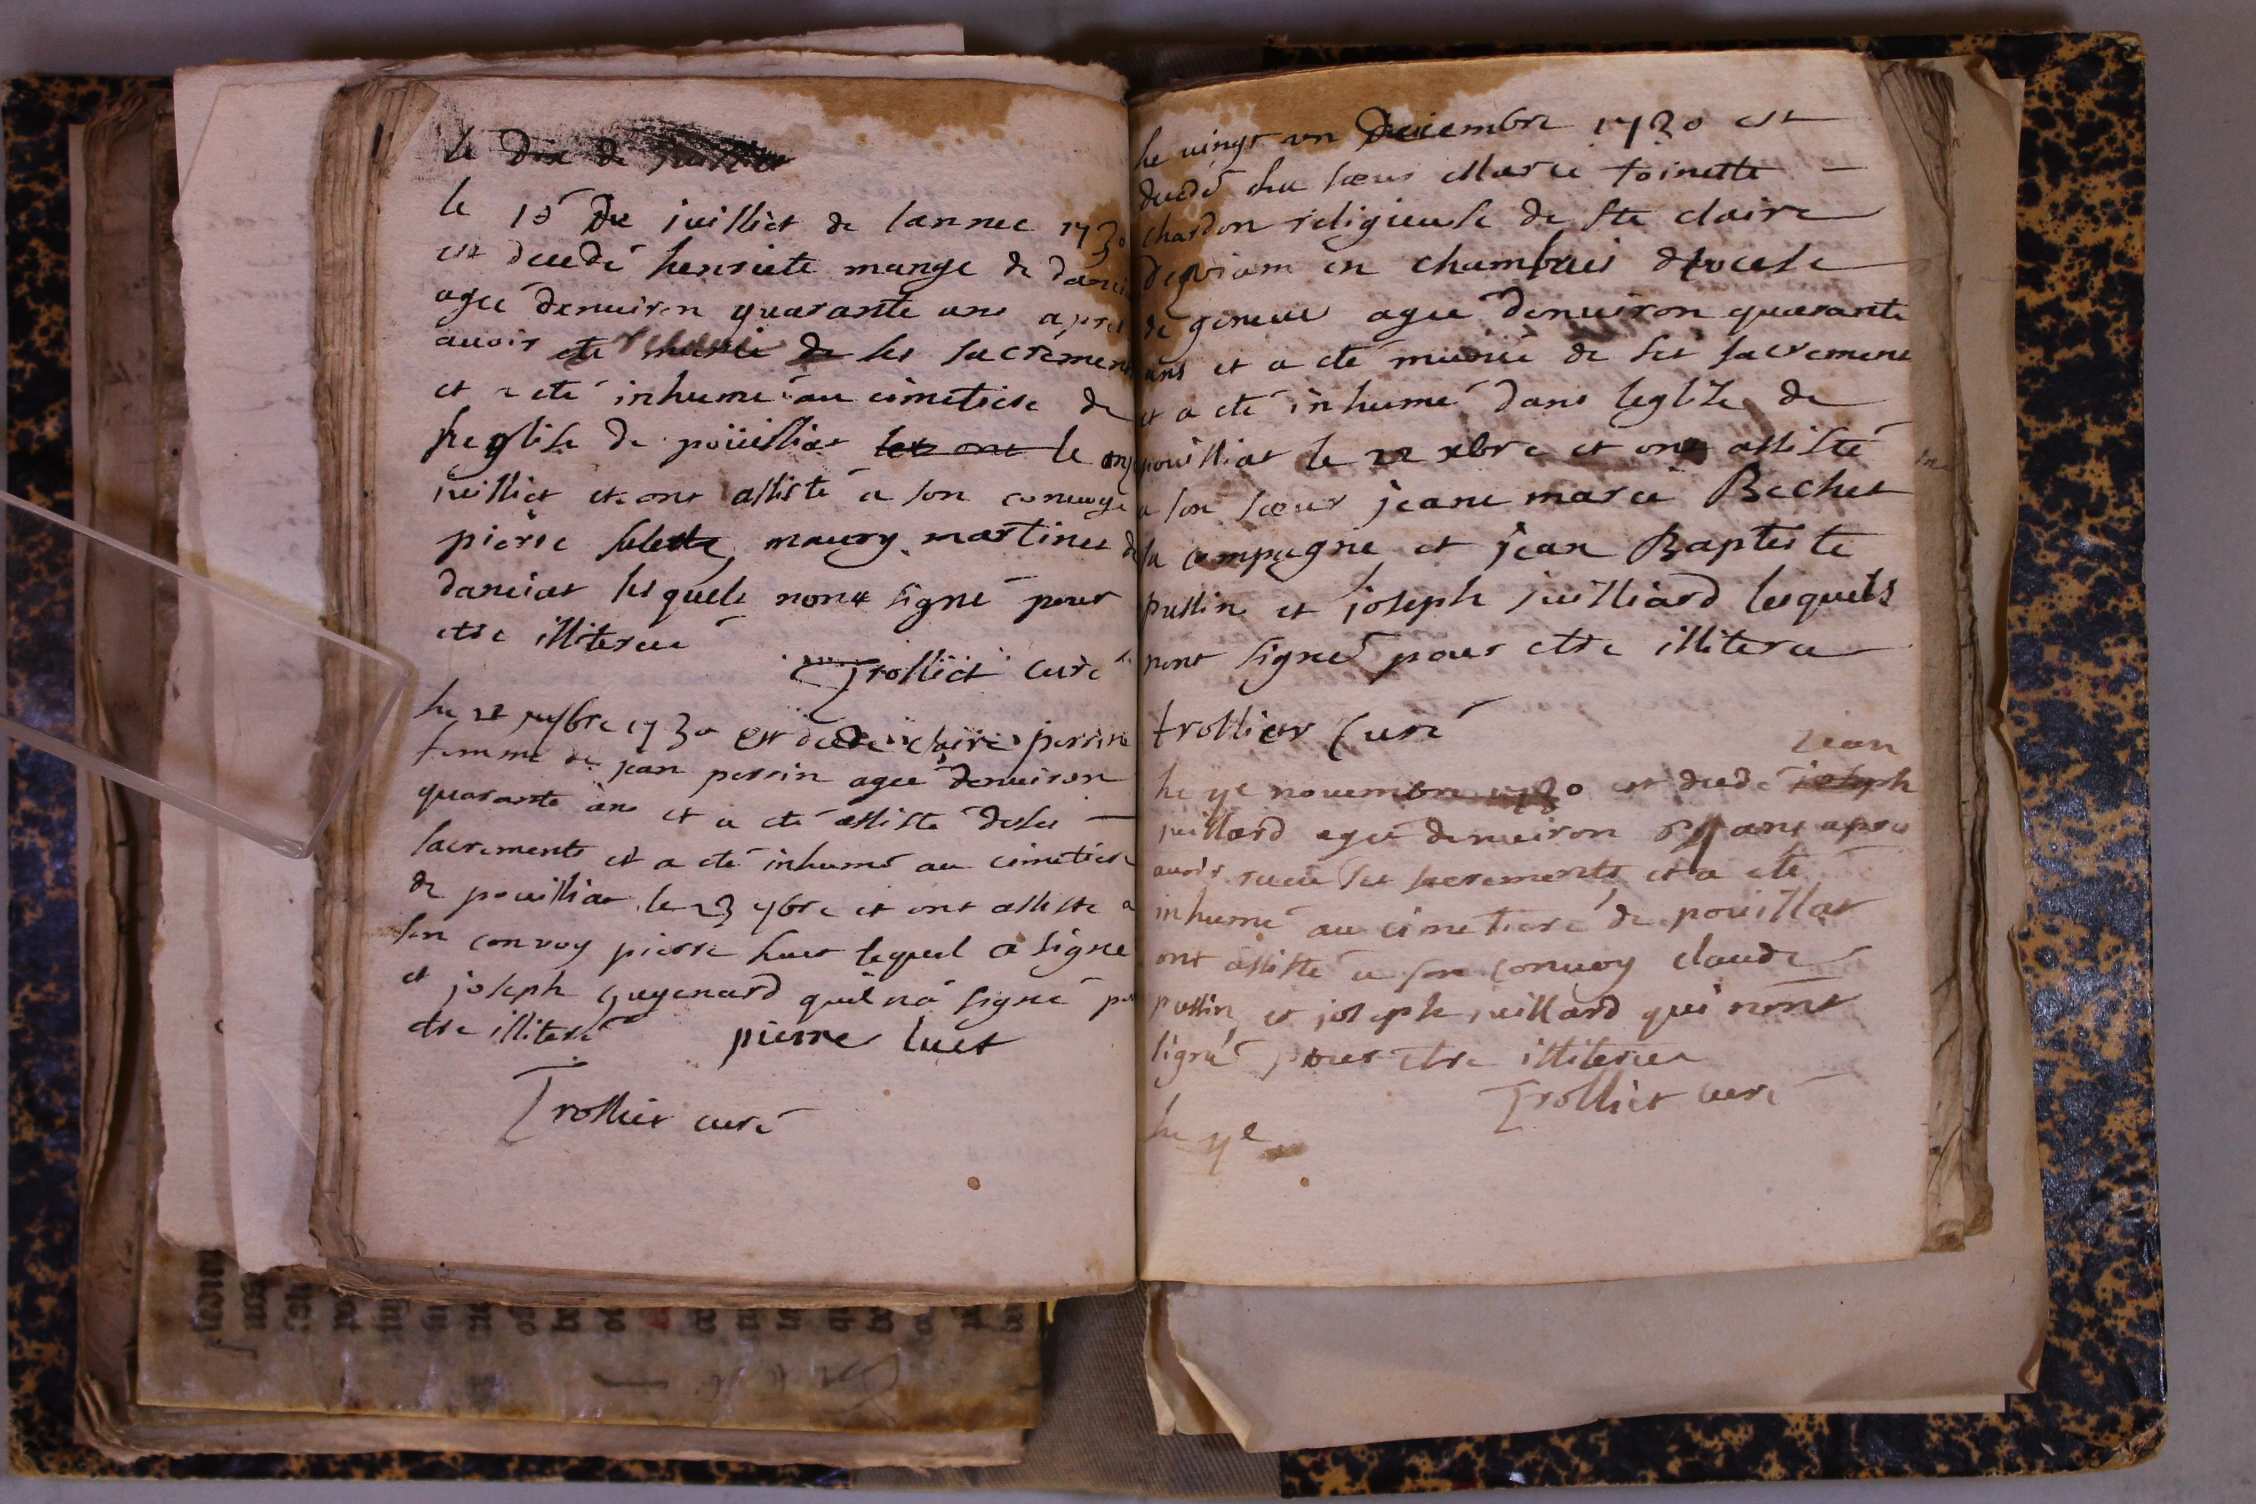 le dix de
le 10 De juilliet de lannee 1730
est decedé henriete mange de danci
agee denuiron quarante ans apres
auoir ses sacremens
et a eté inhumé au cimetiere de
leglise de poüilliat le
juilliet et ont assisté a son conuoy
pierre maury martinet de
danciat lesquels nont signé pour
etre illiteré
Trolliet curé
le 22 1730 est decedé claire perrin
femme de jean perrin agee denuiron
quarante ans et a eté assisté deses
sacrements et a eté inhumé au cimetiere
de pouilliat le 23 9bre et ont assisté a
son convoy pierre luet lequel a signe
et joseph guyenard quil na signé
etre illiteré pierre luet
Trolliet curé
le vingt un Decembre 1730 est
decedé la soeur Marie toinette
chardon religieuse de ste claire
en diocese
de geneue agee denuiron quarante
ans et a eté munie de ses sacremens
et a eté inhumé dans leglise de
pouilliat le 22 xbre et ont assisté
a son soeur jeane marie Bechet
sa compagne et jean Baptiste
pussin et joseph juilliard lesquels
nont signé pour etre illitere
trolliet Curé
jean
le 9e nouembre 1730 est decedé joseph
juillard agé denuiron ans apres
auoir receu ses sacrements et a eté
inhumé au cimetiere de pouillat
ont assisté a son conuoy claude
pussin et joseph juillard qui nont
signé pour etre illiteree
Trolliet curé
le 9e